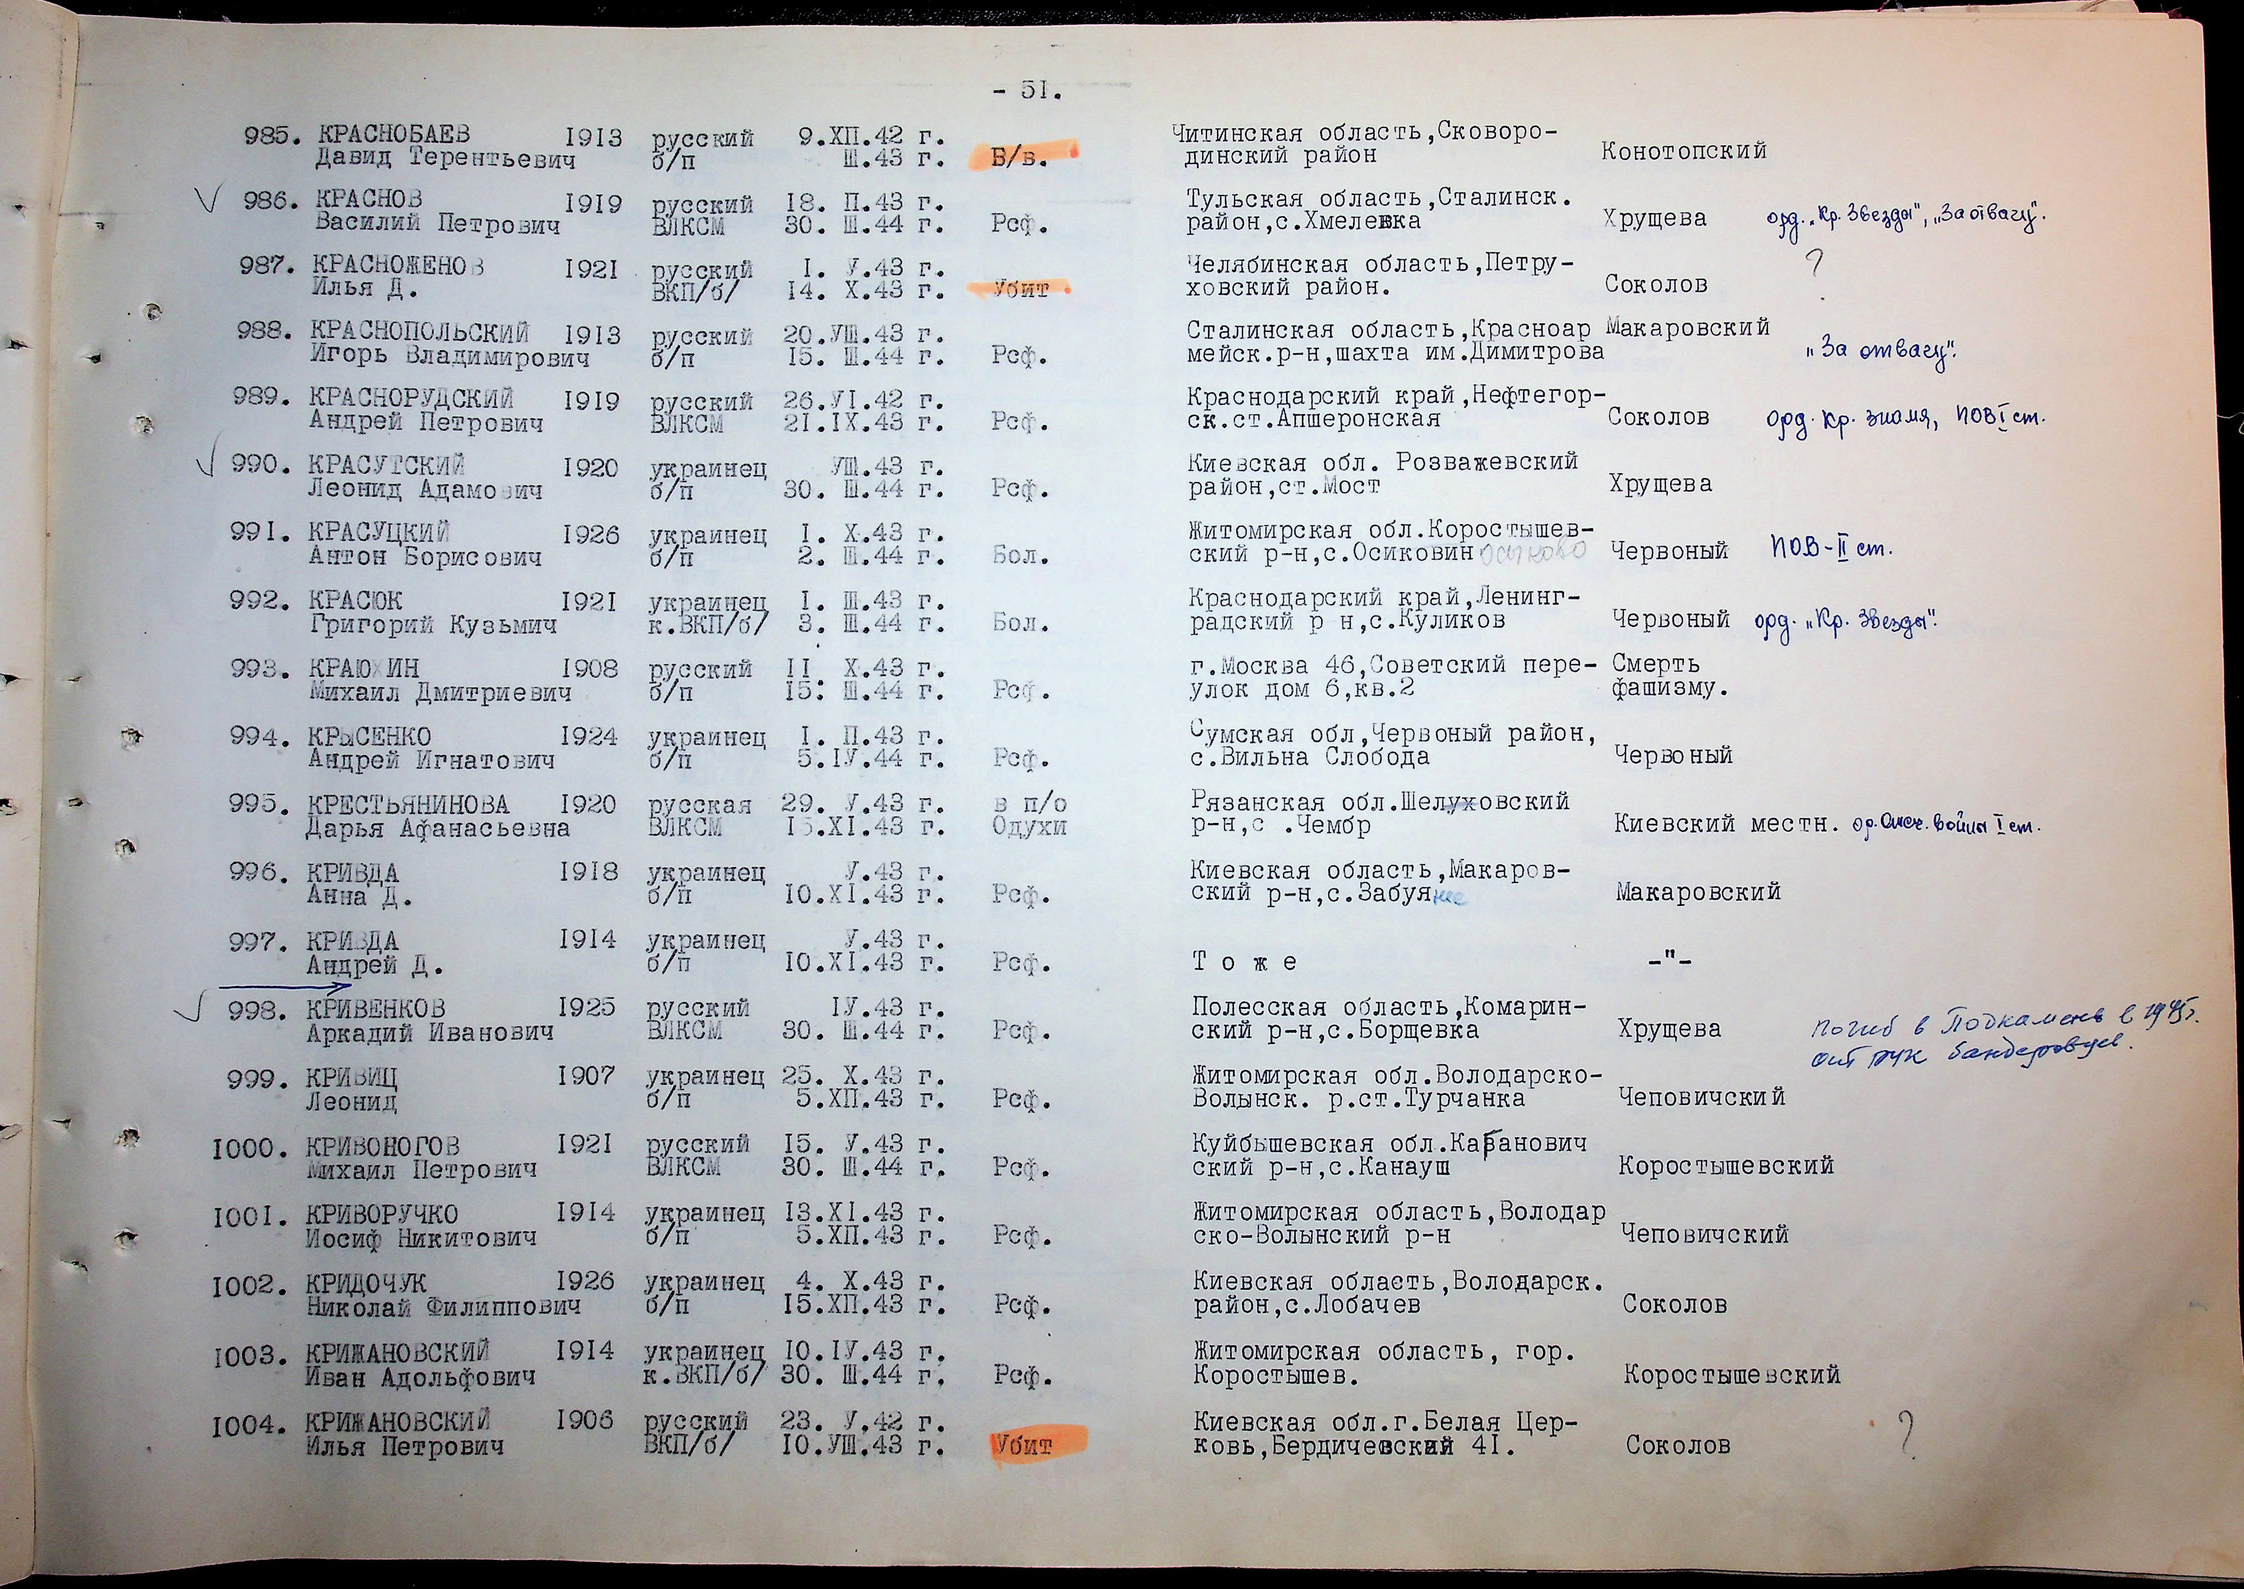 - 51.
985. КРАСНОБАЕВ 1913 русский 9.ХП.42 г. Читинская область,Сковоро-
Давид Терентьевич б/п Ш.43 г. Б/в. динский район Конотопский
986. КРАСНОВ 1919 русский 18. П.43 г. Тульская область,Сталинск.
Василий Петрович ВЛКСМ 30. Ш.44 г. Рсф. район,с.Хмелевка Хрущева орд. „Кр. Звезды", „За отвагу".
987. КРАСНОЖЕНОВ 1921 русский I. У.43 г. Челябинская область,Петру- ?
Илья Д. ВКП/б/ 14. Х.43 г. Убит ховский район. Соколов
988. КРАСНОПОЛЬСКИЙ 1913 русский 20.УШ.43 г. Сталинская область,Красноар Макаровский
Игорь Владимирович б/п 15. Ш.44 г. Рсф. мейск.р-н,шахта им.Димитрова „За отвагу".
989. КРАСНОРУДСКИЙ 1919 русский 26.УІ.42 г. Краснодарский край,Нефтегор-
Андрей Петрович ВЛКСМ 21.ІХ.43 г. Рсф. ск.ст.Апшеронская Соколов орд. Кр. знамя, ПОВ I ст.
990. КРАСУТСКИЙ 1920 украинец УШ.43 г. Киевская обл. Розважевский
Леонид Адамович б/п 30. Ш.44 г. Рсф. район,ст.Мост Хрущева
991. КРАСУЦКИЙ 1926 украинец I. Х.43 г. Житомирская обл.Коростышев-
Антон Борисович б/п 2. Ш.44 г. Бол. ский р-н,с.Осиковин Червоный ПОВ-II ст.
992. КРАСЮК 1921 украинец I. Ш.43 г. Краснодарский край,Ленинг-
Григорий Кузьмич к.ВКП/б/ 3. Ш.44 г. Бол. радский р н,с.Куликов Червоный орд. „Кр. Звезды".
993. КРАЮХИН 1908 русский II Х.43 г. г.Москва 46,Советский пере- Смерть
Михаил Дмитриевич б/п 15. Ш.44 г. Рсф. улок дом 6,кв.2 фашизму.
994. КРЫСЕНКО 1924 украинец I. П.43 г. Сумская обл,Червоный район,
Андрей Игнатович б/п 5.ІУ.44 г. Рсф. с.Вильна Слобода Червоный
995. КРЕСТЬЯНИНОВА 1920 русская 29. У.43 г. в п/о Рязанская обл.Шелуховский
Дарья Афанасьевна ВЛКСМ 15.ХІ.43 г. Одухи р-н,с .Чембр Киевский местн. ор. Отеч. войны I ст.
996. КРИВДА 1918 украинец У.43 г. Киевская область,Макаров-
Анна Д. б/п 10.ХІ.43 г. Рсф. ский р-н,с.Забуянне Макаровский
997. КРИВДА 1914 украинец У.43 г.
Андрей Д. б/п 10.ХІ.43 г. Рсф. Т о ж е -"-
998. КРИВЕНКОВ 1925 русский ІУ.43 г. Полесская область,Комарин-
Аркадий Иванович ВЛКСМ 30. Ш.44 г. Рсф. ский р-н,с.Борщевка Хрущева Погиб в Подкамень в 1945г.
от рук бандеровцев.
999. КРИВИЦ 1907 украинец 25. Х.43 г. Житомирская обл.Володарско-
Леонид б/п 5.ХП.43 г. Рсф. Волынск. р.ст.Турчанка Чеповичский
1000. КРИВОНОГОВ 1921 русский 15. У.43 г. Куйбышевская обл.Кабанович
Михаил Петрович ВЛКСМ 30. Ш.44 г. Рсф. ский р-н,с.Канауш Коростышевский
1001. КРИВОРУЧКО 1914 украинец 13.ХІ.43 г. Житомирская область,Володар
Иосиф Никитович б/п 5.ХП.43 г. Рсф. ско-Волынский р-н Чеповичский
1002. КРИДОЧУК 1926 украинец 4. Х.43 г. Киевская область,Володарск.
Николай Филиппович б/п 15.ХП.43 г. Рсф. район,с.Лобачев Соколов
1003. КРИЖАНОВСКИЙ 1914 украинец 10.ІУ.43 г. Житомирская область, гор.
Иван Адольфович к.ВКП/б/ 30. Ш.44 г. Рсф. Коростышев. Коростышевский
1004. КРИЖАНОВСКИЙ 1906 русский 23. У.42 г. Киевская обл.г.Белая Цер- ?
Илья Петрович ВКП/б/ 10.УШ.43 г. Убит ковь,Бердичевский 41. Соколов